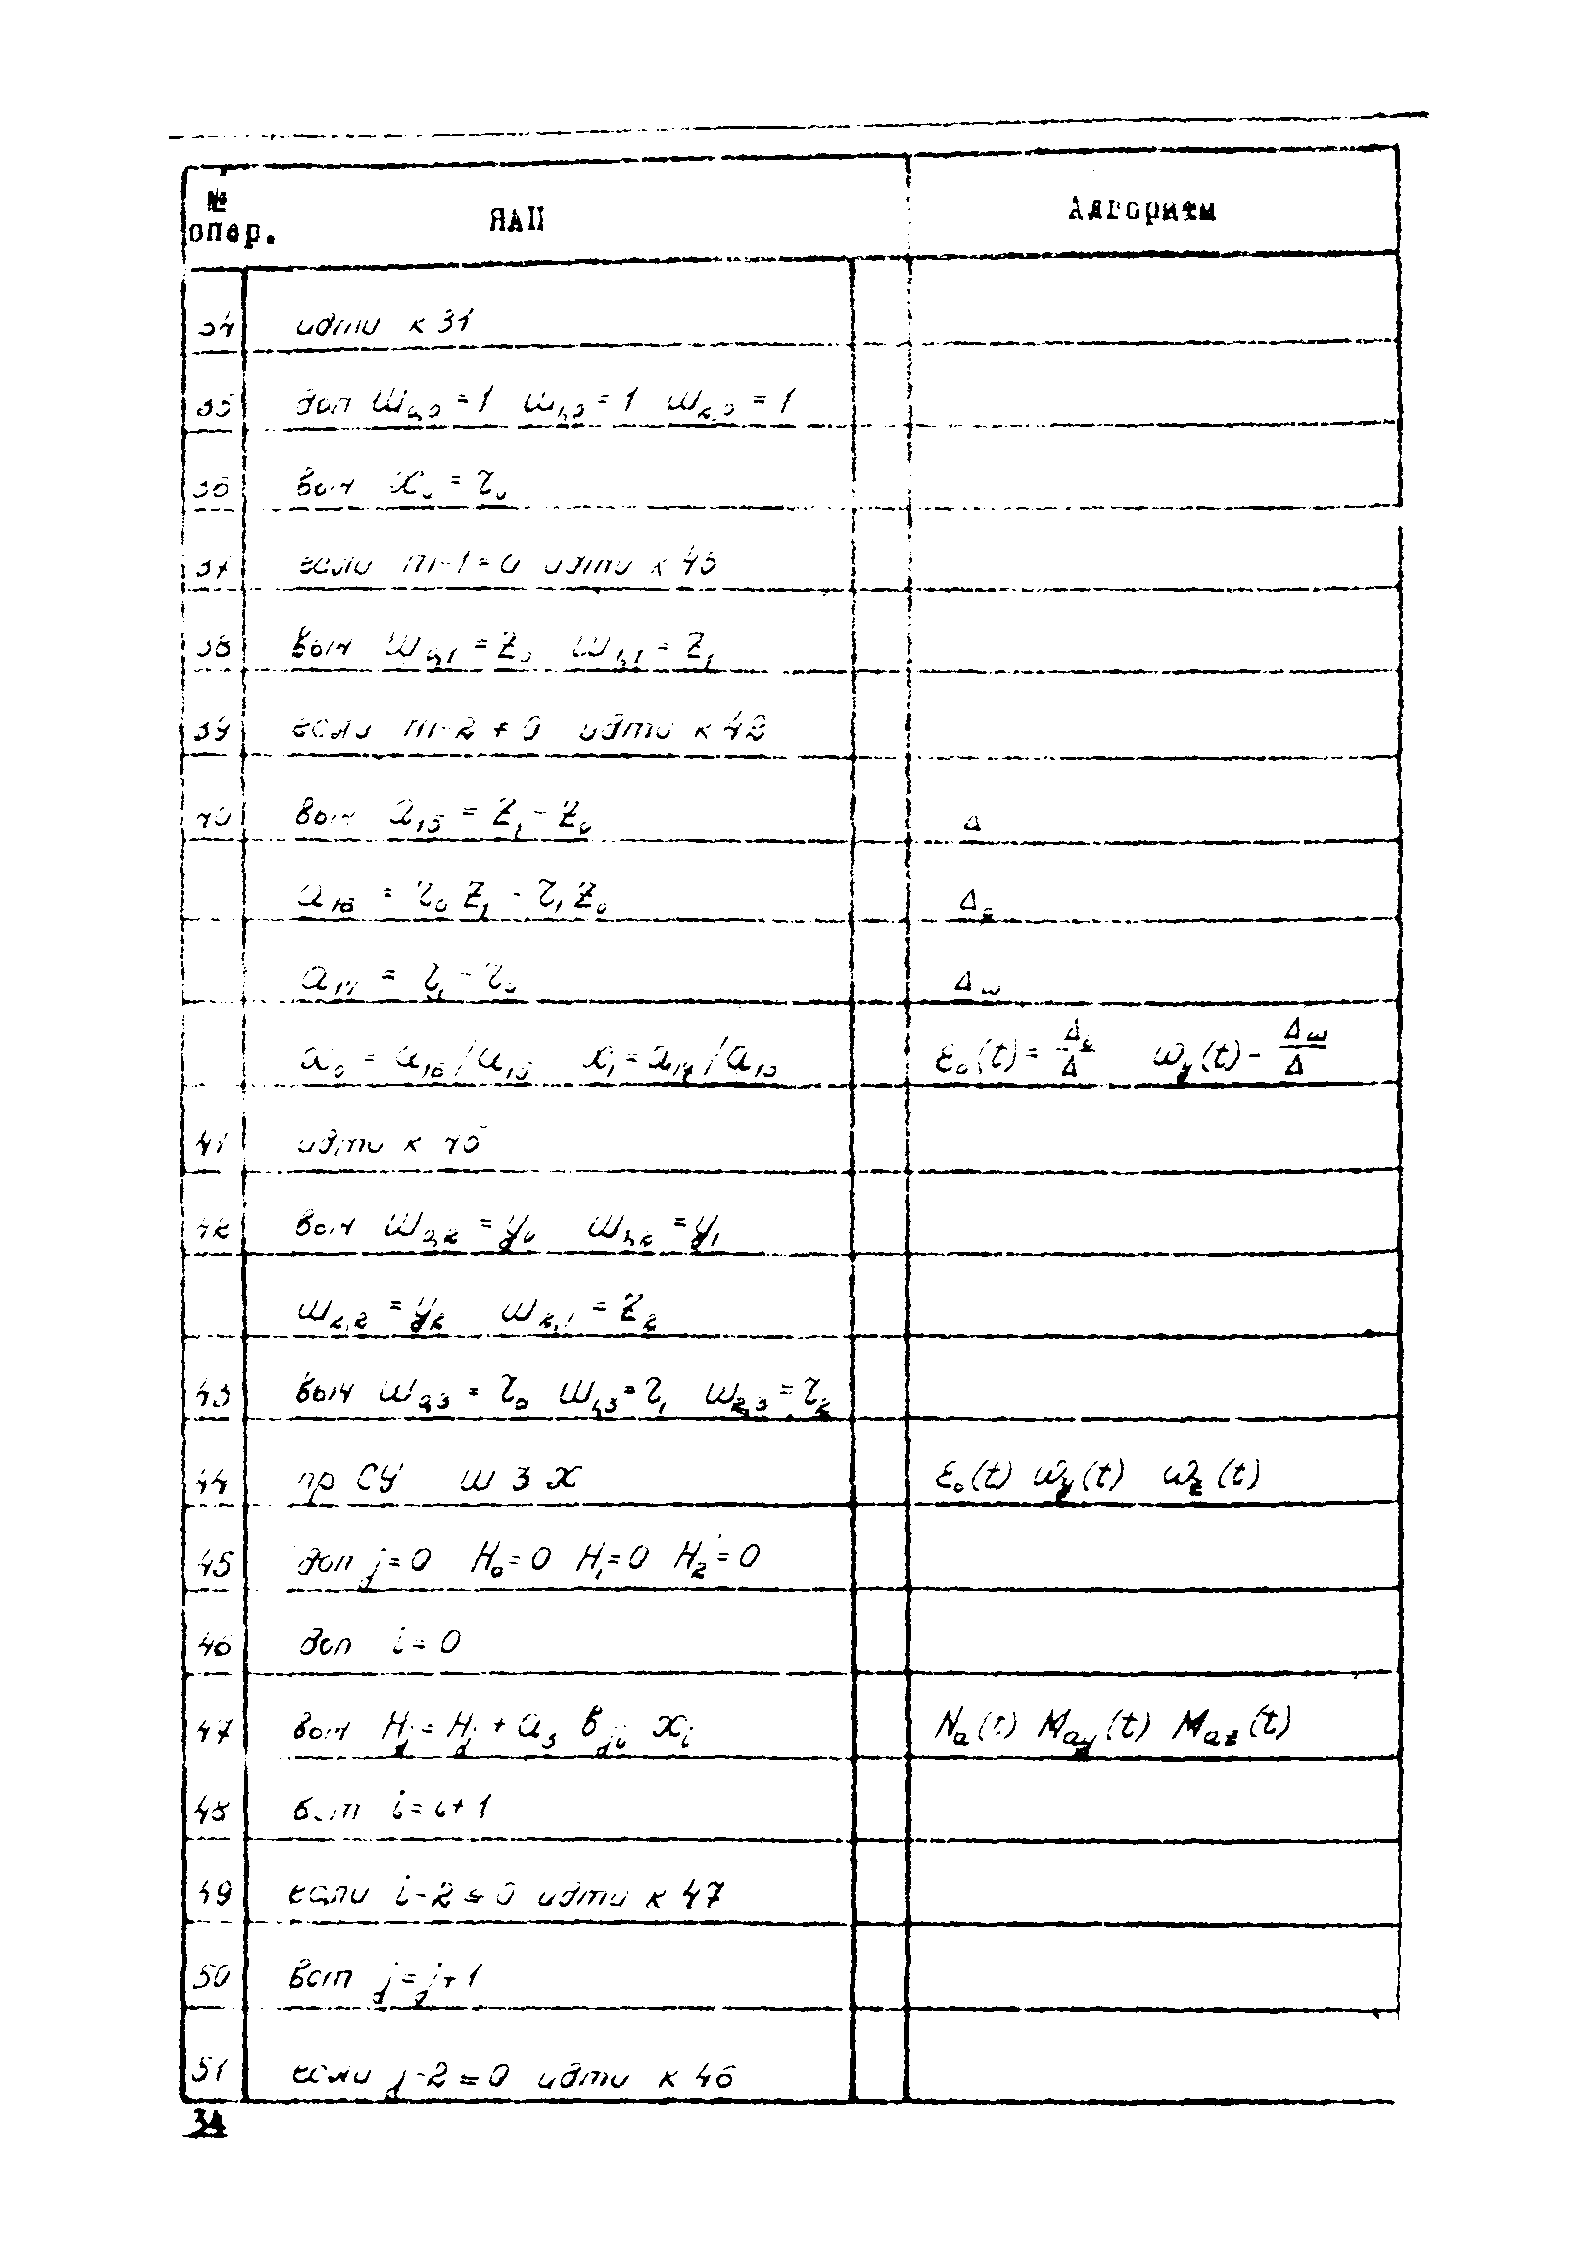 №
опер.
ЯАП
Алгоритм
34 идти к 31
35 доп Ш₀,₀ = 1 Ш₁,₀ = 1 Ш₂,₀ = 1
36 выч x₀ = τ₀
37 если m-1=0 идти к 45
38 выч Ш₀,₁ = z₀ Ш₁,₁ = z₁
39 если m-2≠0 идти к 42
40 выч a₁₅ = z₁ - z₀ Δ
a₁₆ = τ₀ z₁ - τ₁ z₀ Δε
a₁₇ = τ₁ - τ₀ Δω
x₀ = a₁₆/a₁₅ x₁ = a₁₇/a₁₅ ε₀(t) = Δε/Δ ωy(t) = Δω/Δ
41 идти к 45
42 выч Ш₀,₂ = y₀ Ш₁,₂ = y₁
Ш₂,₂ = y₂ Ш₂,₁ = z₂
43 выч Ш₀,₃ = τ₀ Ш₁,₃ = τ₁ Ш₂,₃ = τ₂
44 пр СУ Ш 3 x ε₀(t) ωy(t) ωz(t)
45 доп j=0 H₀=0 H₁=0 H₂=0
46 доп i=0
47 выч Hj = Hj + a₃ вji xi Na(t) May(t) Maz(t)
48 вып i=i+1
49 если i-2≤0 идти к 47
50 вып j=j+1
51 если j-2≤0 идти к 46
34